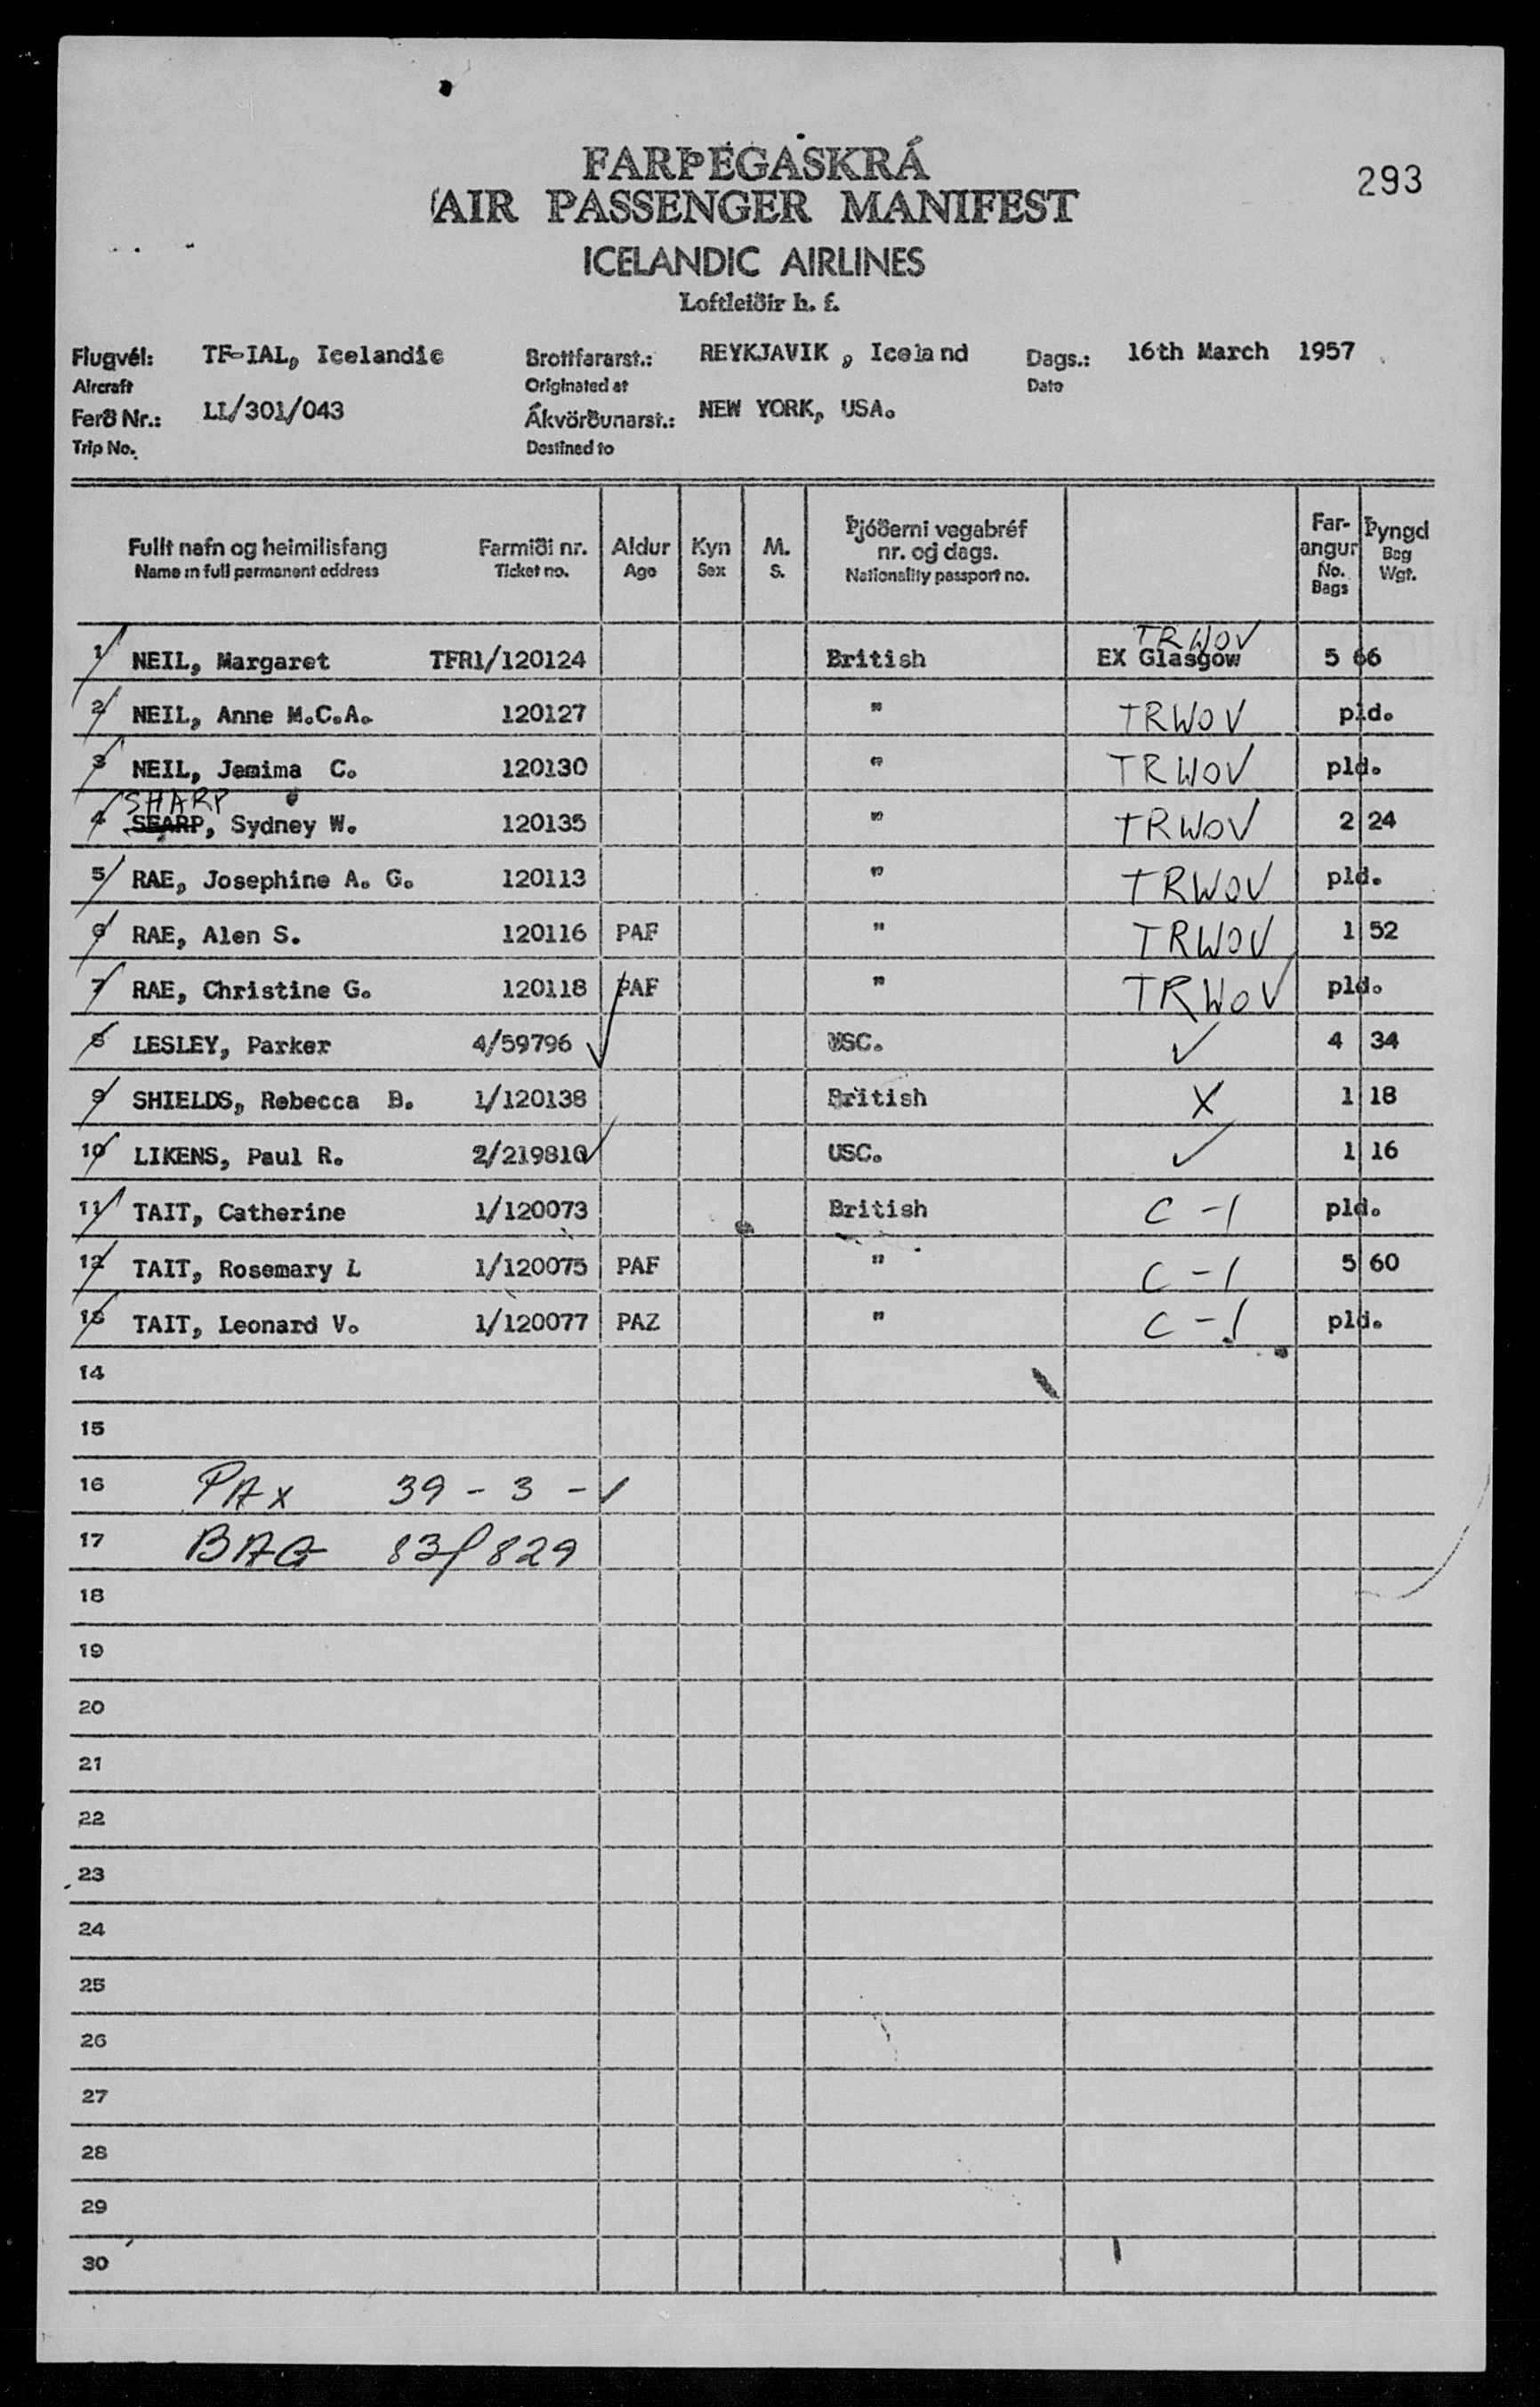 FARÞEGASKRÁ
AIR PASSENGER MANIFEST
293
ICELANDIC AIRLINES
Loftleiðir h. f.
Flugvél: TF-IAL, Icelandic Brottfararst.: REYKJAVIK , Iceland Dags.: 16th March 1957
Aircraft Originated at Date
Ferð Nr.: LL/301/043 Ákvörðunarst.: NEW YORK, USA.
Trip No. Destined to
Fullt nafn og heimilisfang Farmiði nr. Aldur Kyn M. Þjóðerni vegabréf nr. og dags. Far-angur Þyngd
Name in full permanent address Ticket no. Age Sex S. Nationality passport no. No. Bags Bag Wgt.
TRWOV
1 NEIL, Margaret TFR1/120124 British EX Glasgow 5 66
2 NEIL, Anne M.C.A. 120127 " TRWOV pld.
3 NEIL, Jemima C. 120130 " TRWOV pld.
SHARP
4 SEARP, Sydney W. 120135 " TRWOV 2 24
5 RAE, Josephine A. G. 120113 " TRWOV pld.
6 RAE, Alen S. 120116 PAF " TRWOV 1 52
7 RAE, Christine G. 120118 PAF " TRWOV pld.
8 LESLEY, Parker 4/59796 USC. ✓ 4 34
9 SHIELDS, Rebecca B. 1/120138 British X 1 18
10 LIKENS, Paul R. 2/219810 USC. ✓ 1 16
11 TAIT, Catherine 1/120073 British C-1 pld.
12 TAIT, Rosemary L 1/120075 PAF " C-1 5 60
13 TAIT, Leonard V. 1/120077 PAZ " C-1 pld.
14
15
16 PAX 39 - 3 - 1
17 BAG 83/829
18
19
20
21
22
23
24
25
26
27
28
29
30